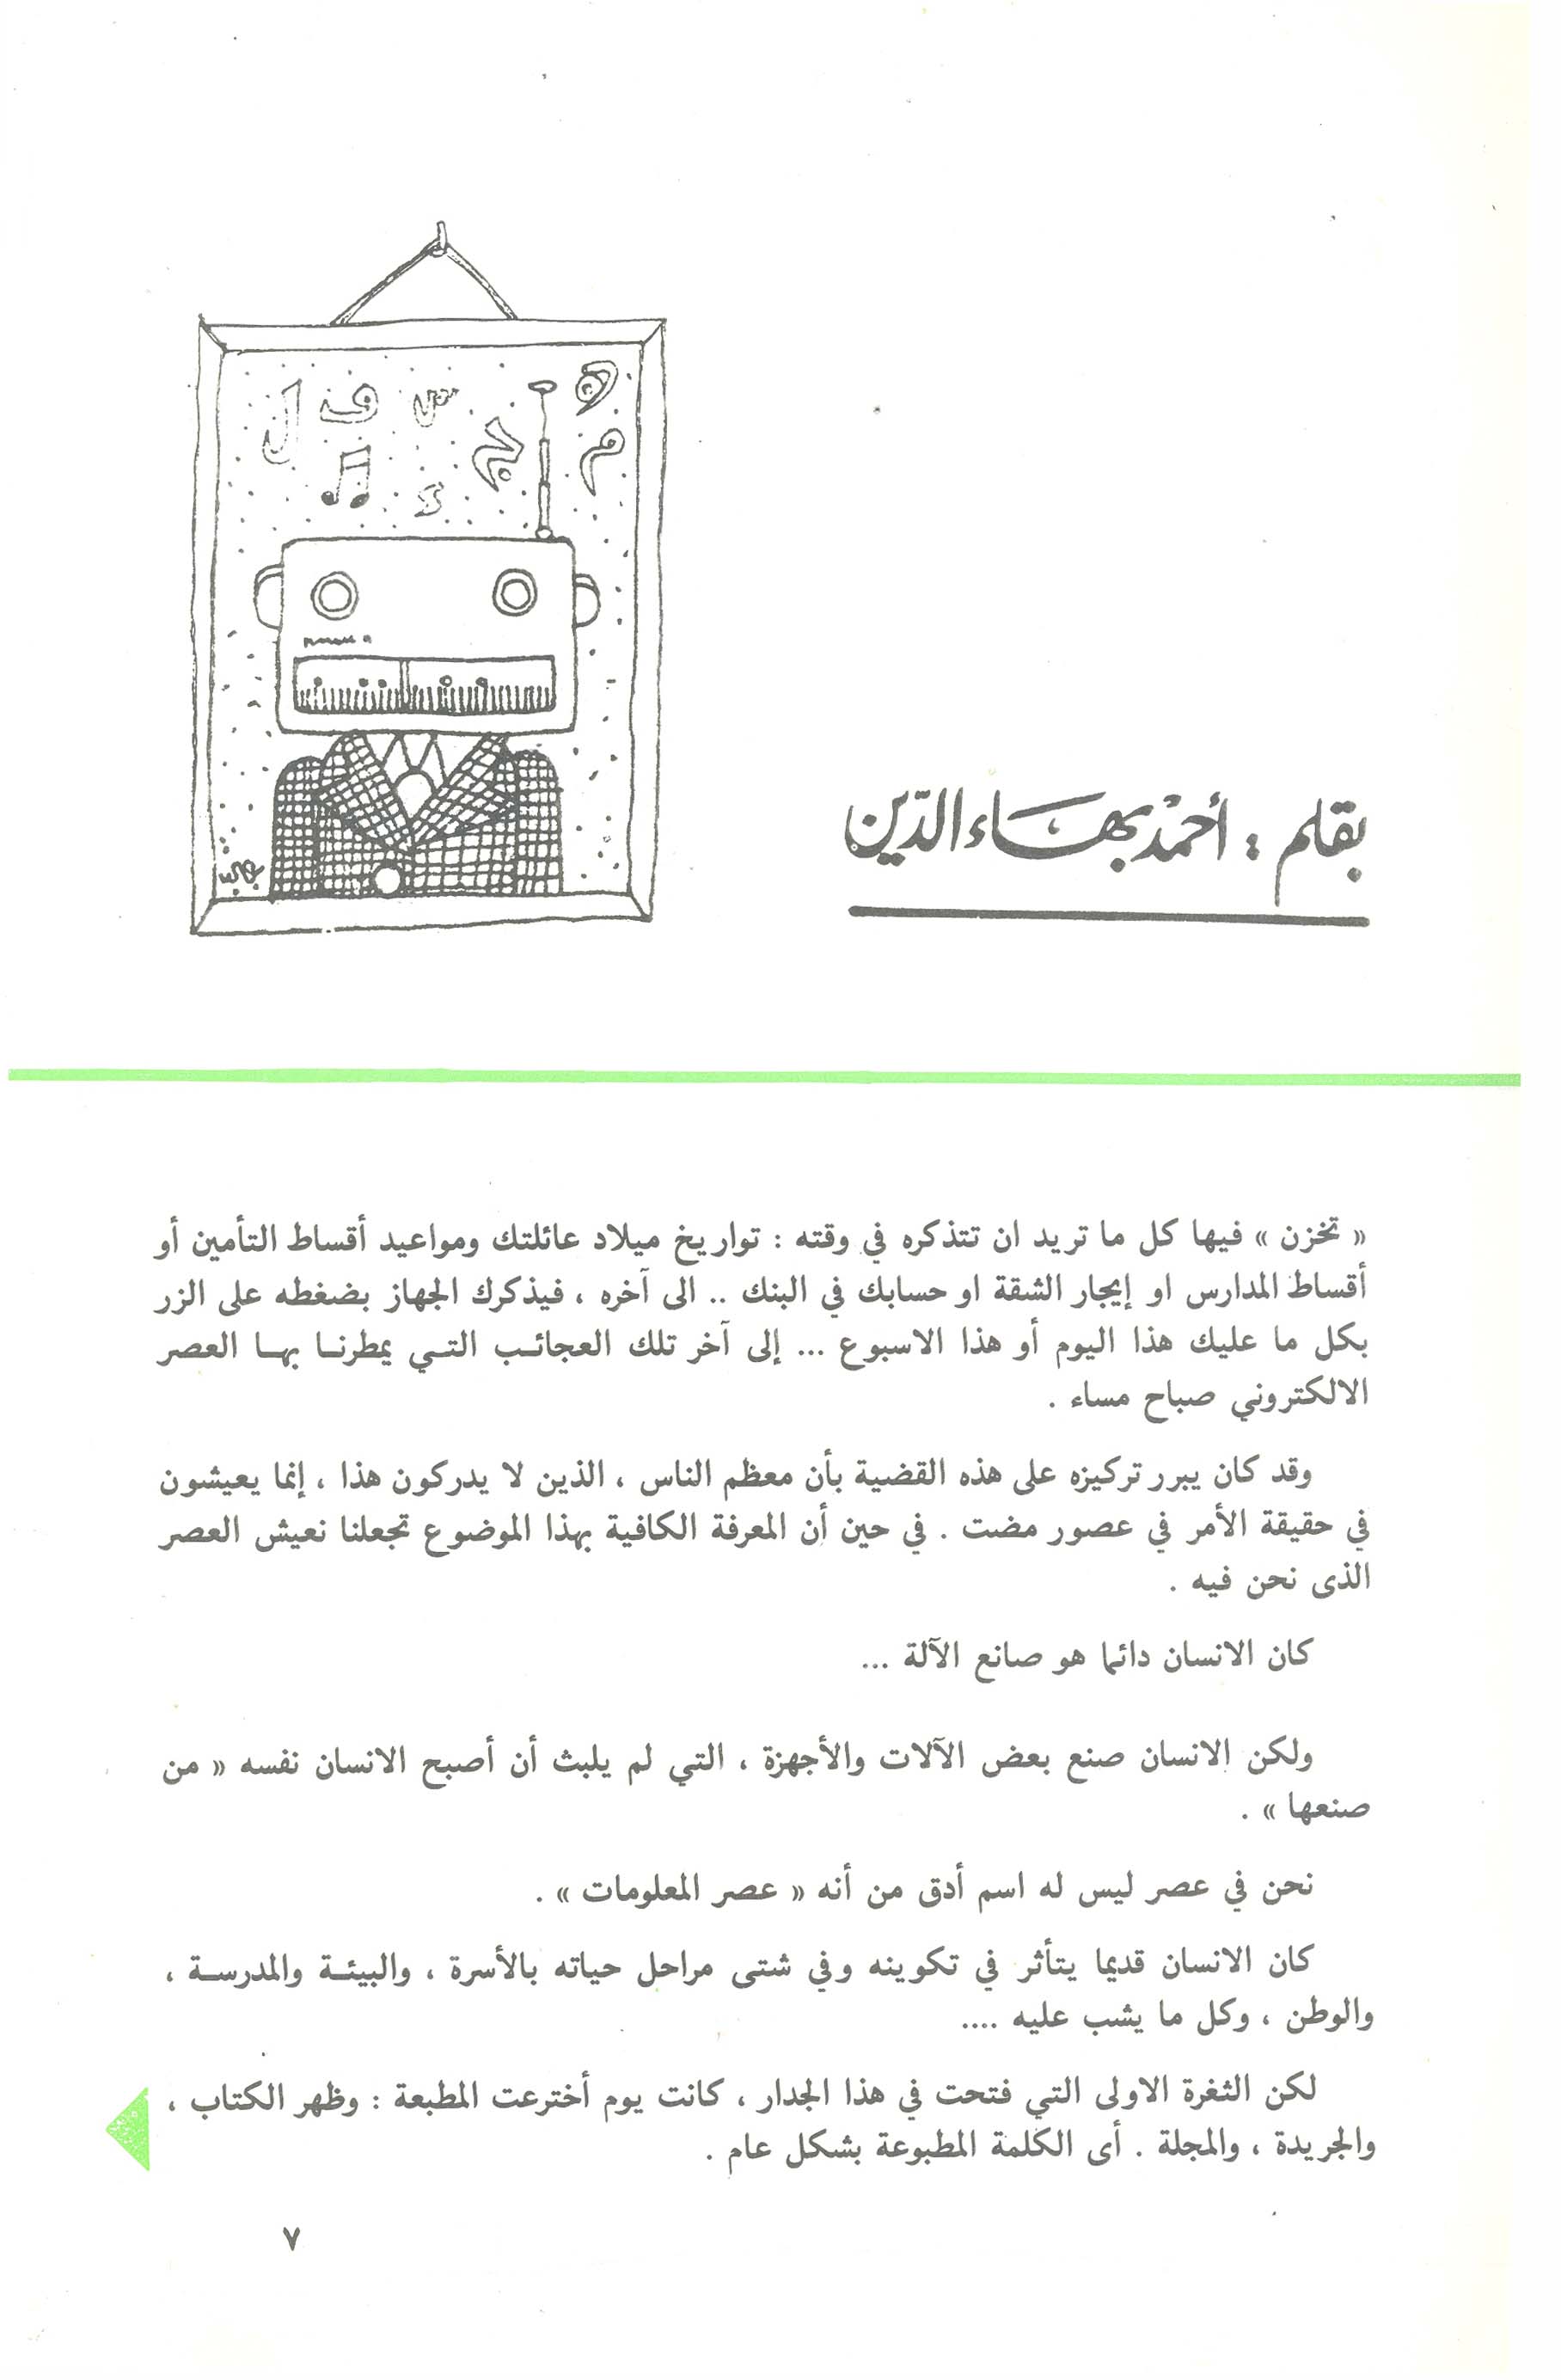 و
م
ج
س
ف
ل
بقلم : أحمد بهاء الدّين
« تخزن » فيها كل ما تريد ان تتذكره في وقته : تواريخ ميلاد عائلتك ومواعيد أقساط التأمين أو
أقساط المدارس او إيجار الشقة او حسابك في البنك .. الى آخره ، فيذكرك الجهاز بضغطه على الزر
بكل ما عليك هذا اليوم أو هذا الاسبوع ... إلى آخر تلك العجائب التي يمطرنا بها العصر
الالكتروني صباح مساء .
وقد كان يبرر تركيزه على هذه القضية بأن معظم الناس ، الذين لا يدركون هذا ، إنما يعيشون
في حقيقة الأمر في عصور مضت . في حين أن المعرفة الكافية بهذا الموضوع تجعلنا نعيش العصر
الذى نحن فيه .
كان الانسان دائما هو صانع الآلة ...
ولكن الانسان صنع بعض الآلات والأجهزة ، التي لم يلبث أن أصبح الانسان نفسه « من
صنعها » .
نحن في عصر ليس له اسم أدق من أنه « عصر المعلومات » .
كان الانسان قديما يتأثر في تكوينه وفي شتى مراحل حياته بالأسرة ، والبيئة والمدرسة ،
والوطن ، وكل ما يشب عليه ....
لكن الثغرة الاولى التي فتحت في هذا الجدار ، كانت يوم أخترعت المطبعة : وظهر الكتاب ،
والجريدة ، والمجلة . أى الكلمة المطبوعة بشكل عام .
٧